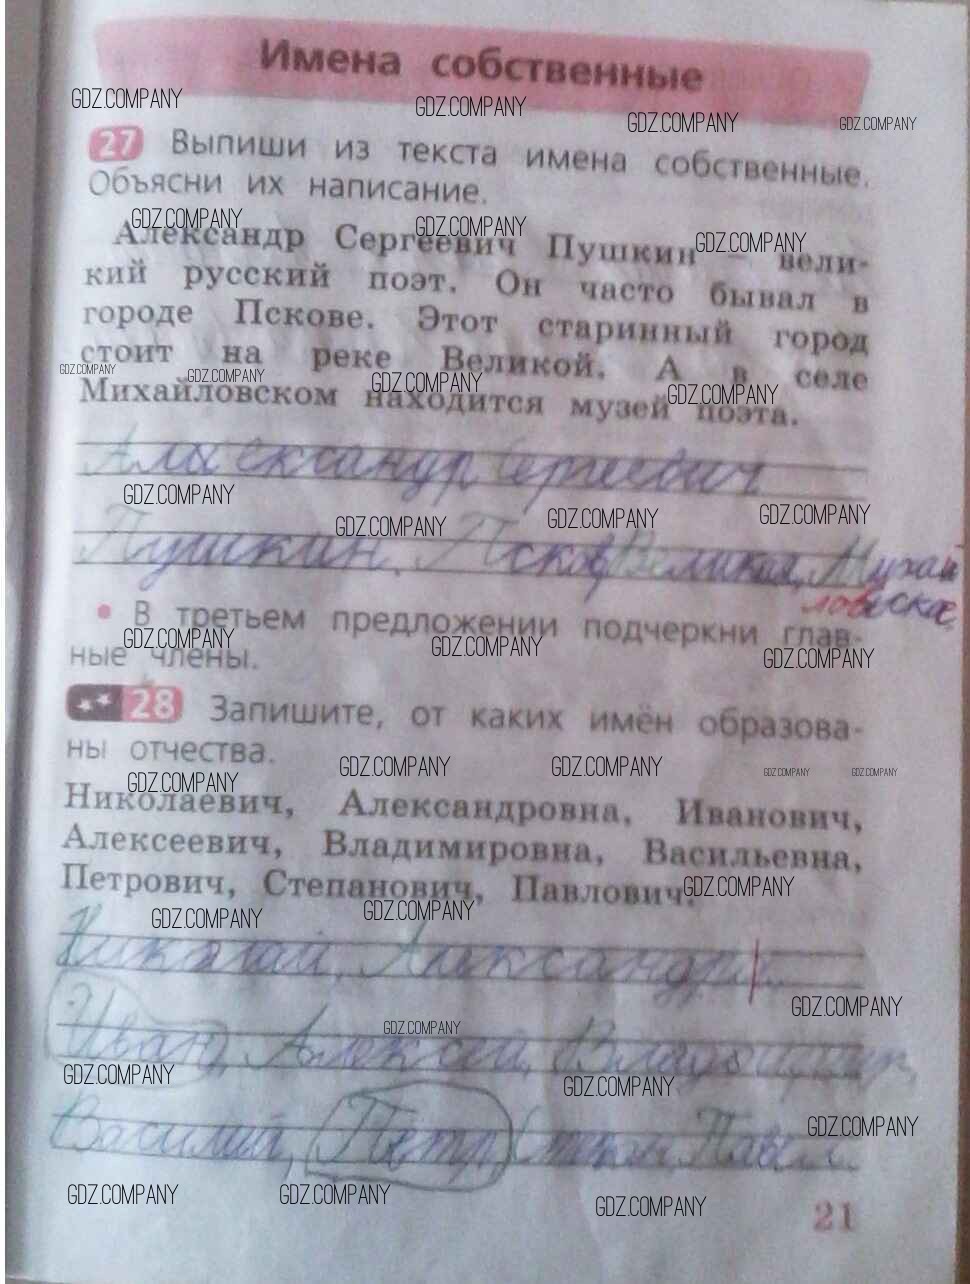 Имена собственные
27 Выпиши из текста имена собственные.
Объясни их написание.
Александр Сергеевич Пушкин – вели-
кий русский поэт. Он часто бывал в
городе Пскове. Этот старинный город
стоит на реке Великой. А в селе
Михайловском находится музей поэта.
Александр Сергеевич
Пушкин, Псков, Великая, Михай
ловское.
• В третьем предложении подчеркни глав-
ные члены.
28 Запишите, от каких имён образова-
ны отчества.
Николаевич, Александровна, Иванович,
Алексеевич, Владимировна, Васильевна,
Петрович, Степанович, Павлович.
Николай, Александр
Иван, Алексей, Владимир,
Василий, Пётр, Степан, Павел.
21
GDZ.COMPANY